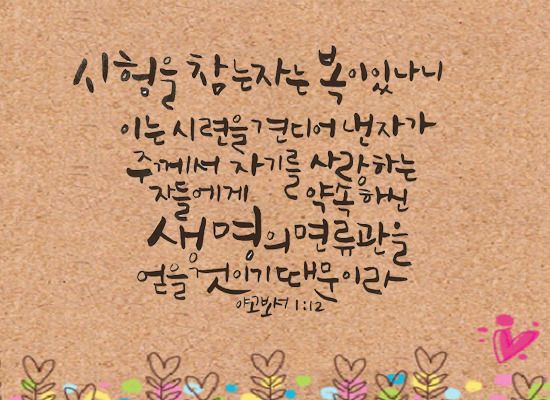 시형을 참는자는 복이있나니
이는 시련을 견디어 낸자가
주께서 자기를 사랑하는
자들에게 약속하신
생명의 면류관을
얻을것이기때문이라
야고보서 1:12